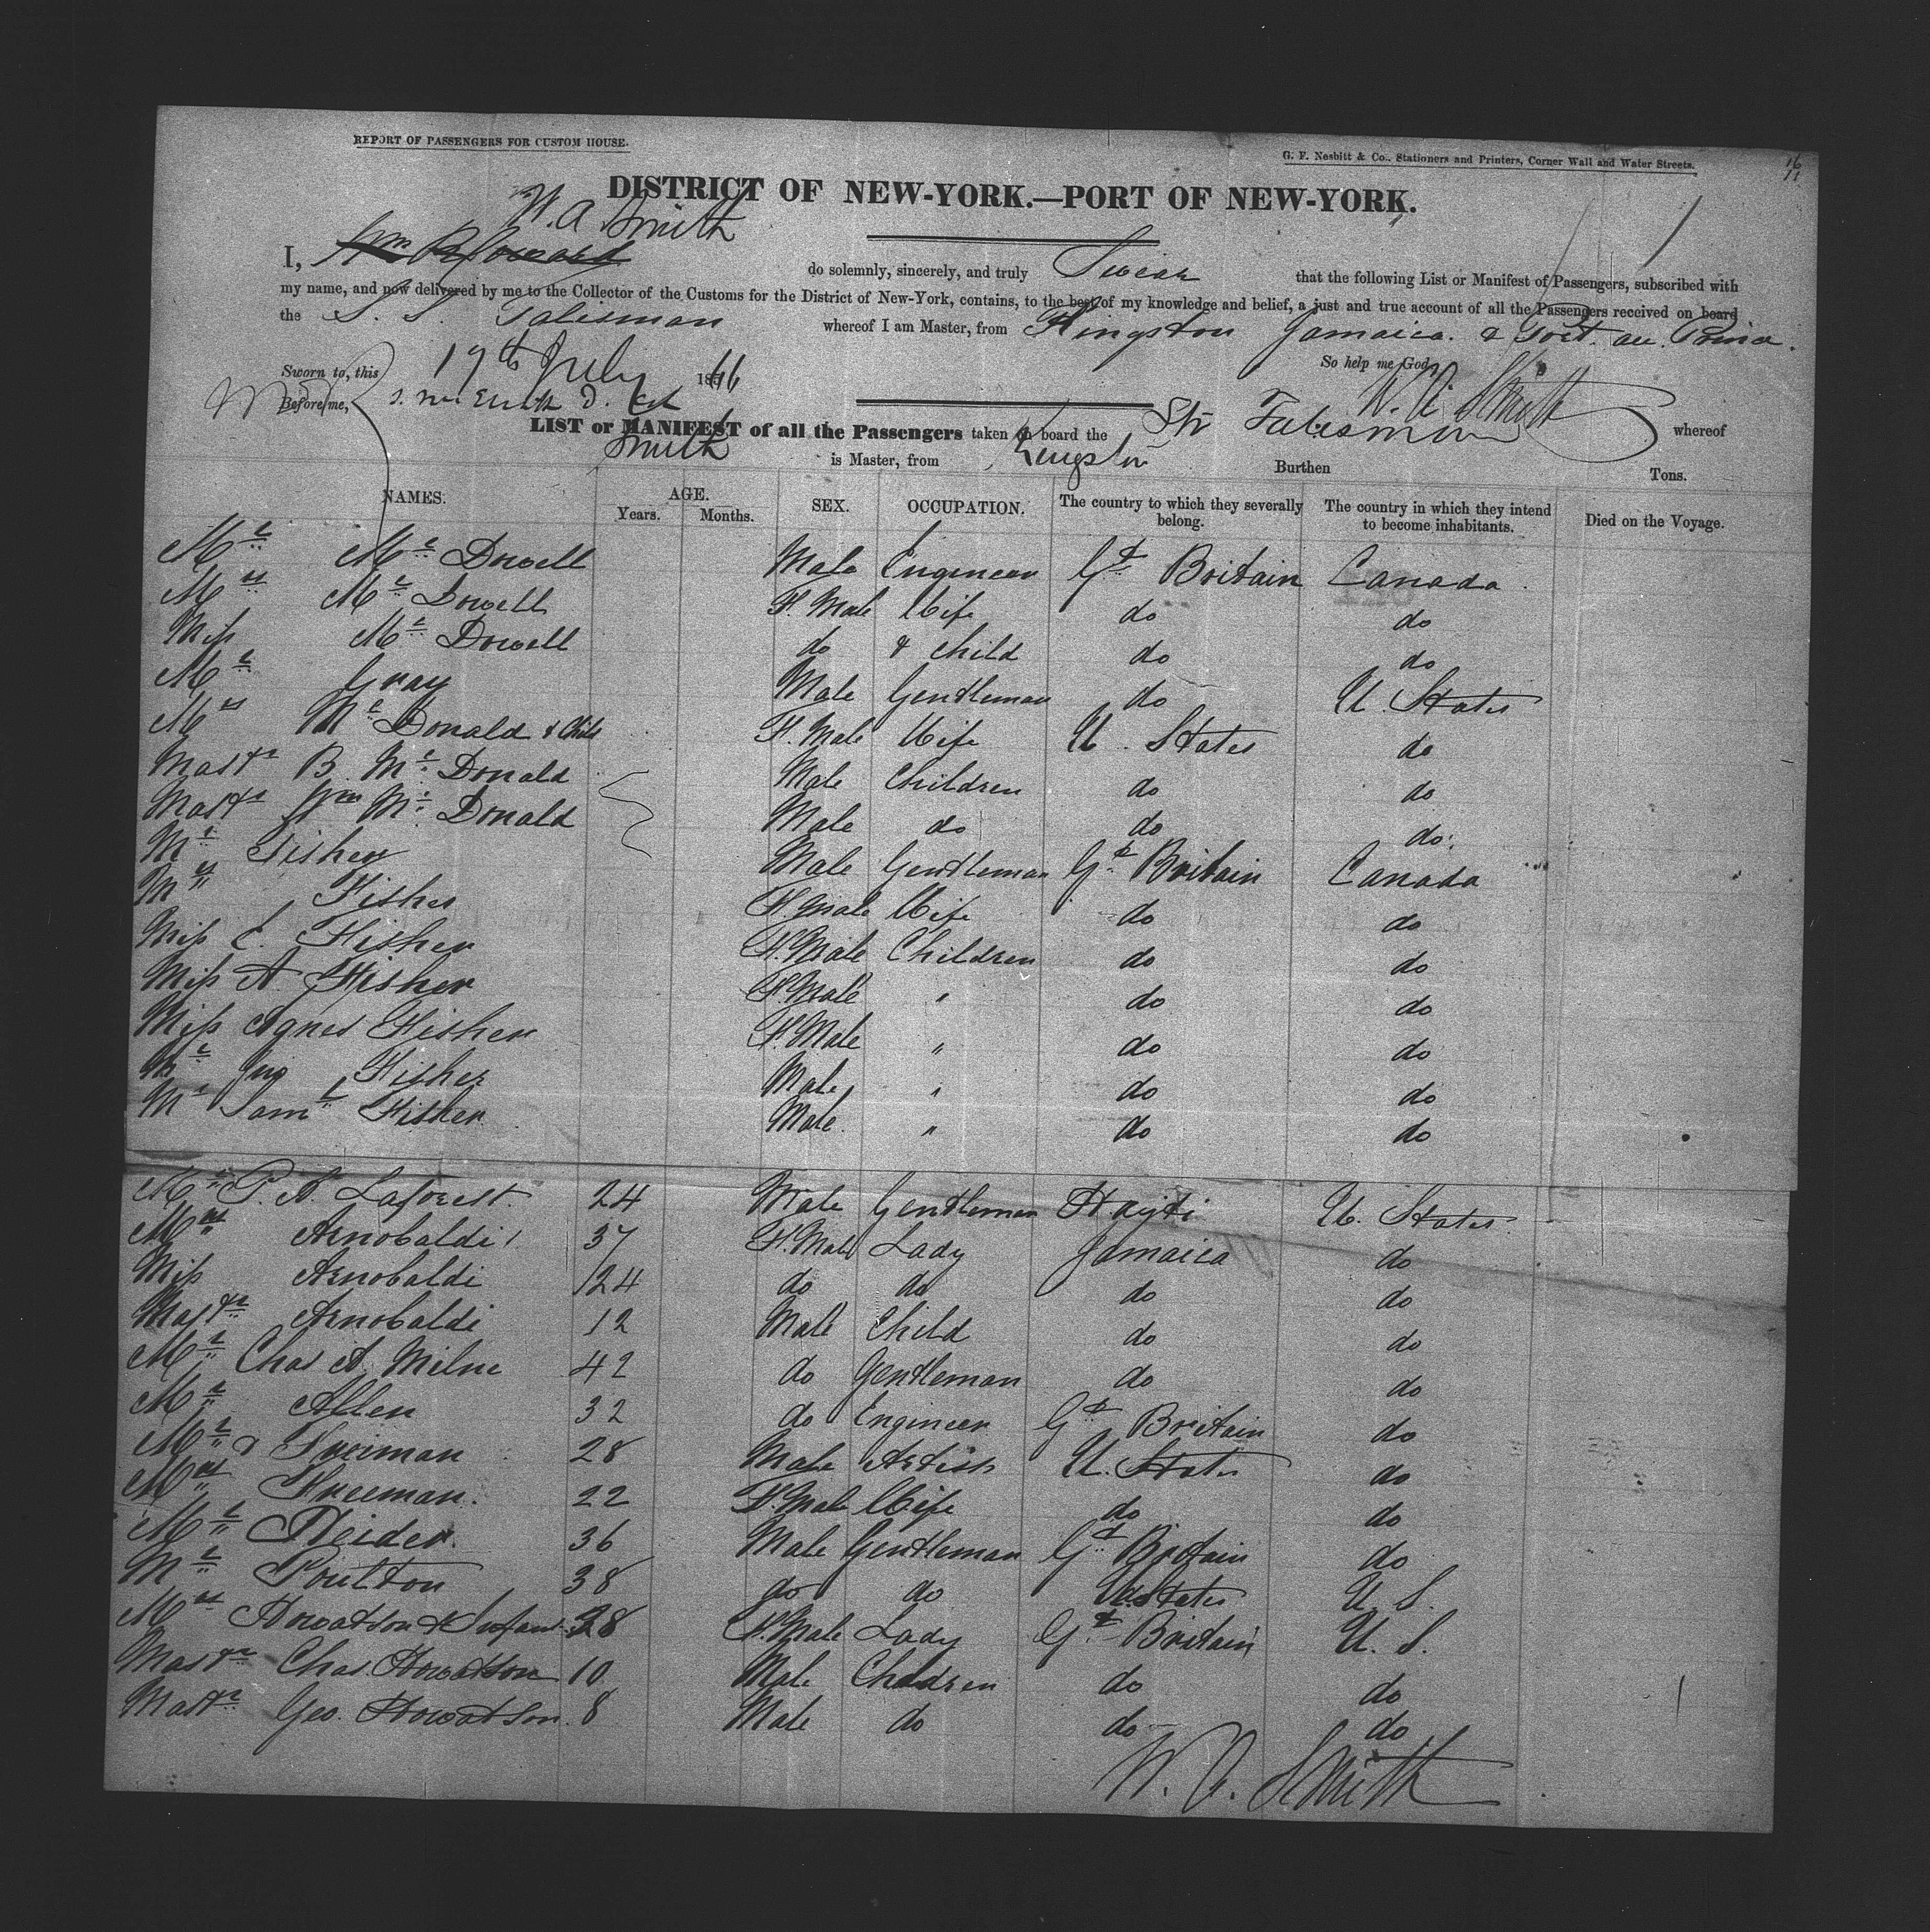 REPORT OF PASSENGERS FOR CUSTOM HOUSE.
G. F. Nesbitt & Co., Stationers and Printers, Corner Wall and Water Streets.
DISTRICT OF NEW-YORK.—PORT OF NEW-YORK.
W. A Smith
I, do solemnly, sincerely, and truly Swear that the following List or Manifest of Passengers, subscribed with
my name, and now delivered by me to the Collector of the Customs for the District of New-York, contains, to the best of my knowledge and belief, a just and true account of all the Passengers received on board
the S. S. Talisman whereof I am Master, from Kingston Jamaica. & Port. au. Prince.
Sworn to, this 19th July 1866 So help me God,
Before me, W. A. Smith
LIST or MANIFEST of all the Passengers taken on board the Str Talisman whereof
Smith is Master, from Kingston Burthen Tons.
NAMES. AGE. Years. Months. SEX. OCCUPATION. The country to which they severally belong. The country in which they intend to become inhabitants. Died on the Voyage.
Mr Mc Dowell Male Engineer Gt Britain Canada
Mrs Mc Dowell F. Male Wife do do
Miss Mc Dowell do & Child do do
Mr Gray Male Gentleman do U. States
Mrs Mc Donald & Child F. Male Wife U. States do
Mastr B. Mc Donald Male Children do do
Mastr Wm Mc Donald Male do do do
Mr Fisher Male Gentleman Gt Britain Canada
Mrs Fisher F. Male Wife do do
Miss E. Fisher F. Male Children do do
Miss A Fisher F. Male " do do
Miss Agnes Fisher F. Male " do do
Mr Jno Fisher Male " do do
Mr Saml Fisher Male " do do
Mr P. A. Laforest. 24 Male Gentleman Hayti U. States
Mrs Arnobaldi 37 F. Male Lady Jamaica do
Miss Arnobaldi 24 do do do do
Mastr Arnobaldi 12 Male Child do do
Mr Chas A. Milne 42 do Gentleman do do
Mr Allen 32 do Engineer Gt Britain do
Mr Freeman 28 Male Artist U. States do
Mrs Freeman. 22 F. Male Wife do do
Mr 36 Male Gentleman Gt Britain do
Mr Poulton 38 do do U. States U. S.
Mrs Howatson & Infant 38 F. Male Lady Gt Britain U. S.
Mastr Chas. Howatson 10 Male Children do do
Mastr Geo. Howatson. 8 Male do do do
W. A. Smith